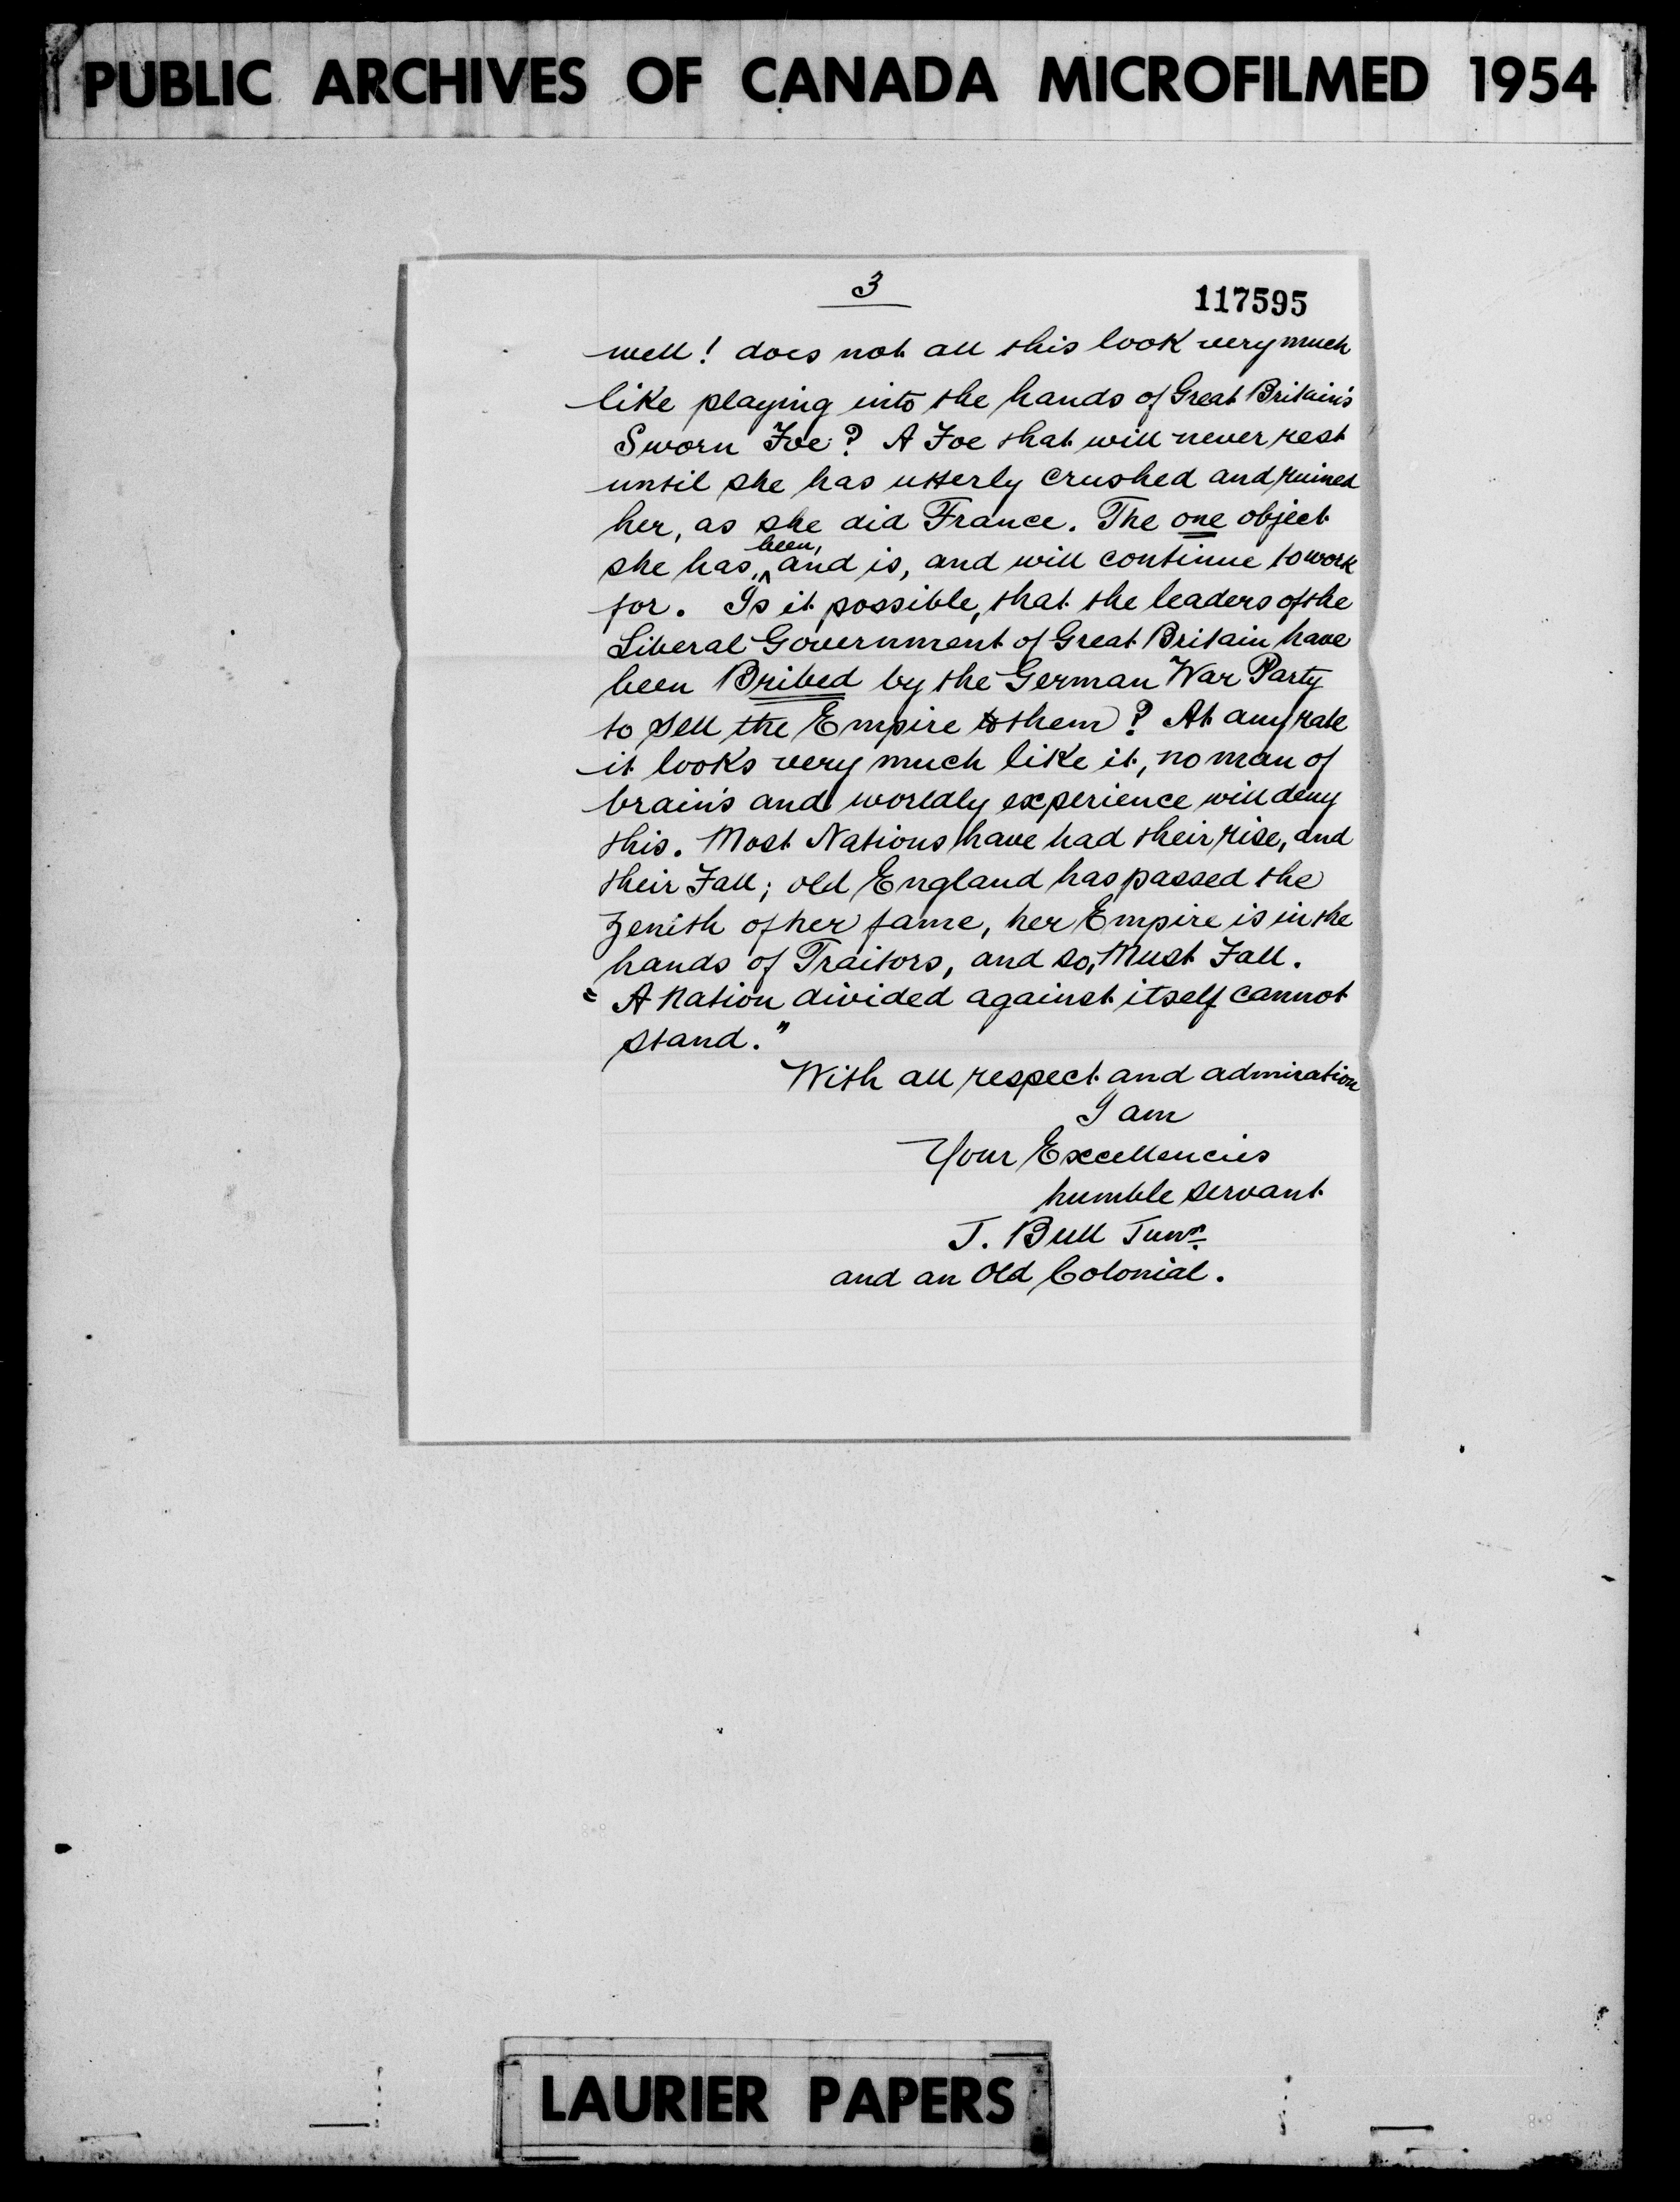 PUBLIC ARCHIVES OF CANADA MICROFILMED 1954
3
117595
well! does not all this look very much
like playing into the hands of Great Britain's
Sworn Foe? A Foe that will never rest
until she has utterly crushed and ruined
her, as she did France. The one object
she has, been, and is, and will continue to work
for. Is it possible, that the leaders of the
Liberal Government of Great Britain have
been Bribed by the German War Party
to sell the Empire to them? At any rate
it looks very much like it, no man of
brain's and worldly experience will deny
this. Most Nations have had their rise, and
their Fall; old England has passed the
zenith of her fame, her Empire is in the
hands of Traitors, and so, Must Fall.
"A Nation divided against itself cannot
stand."
With all respect and admiration
I am
Your Excellencies
humble servant
J. Bull Junr.
and an Old Colonial.
LAURIER PAPERS